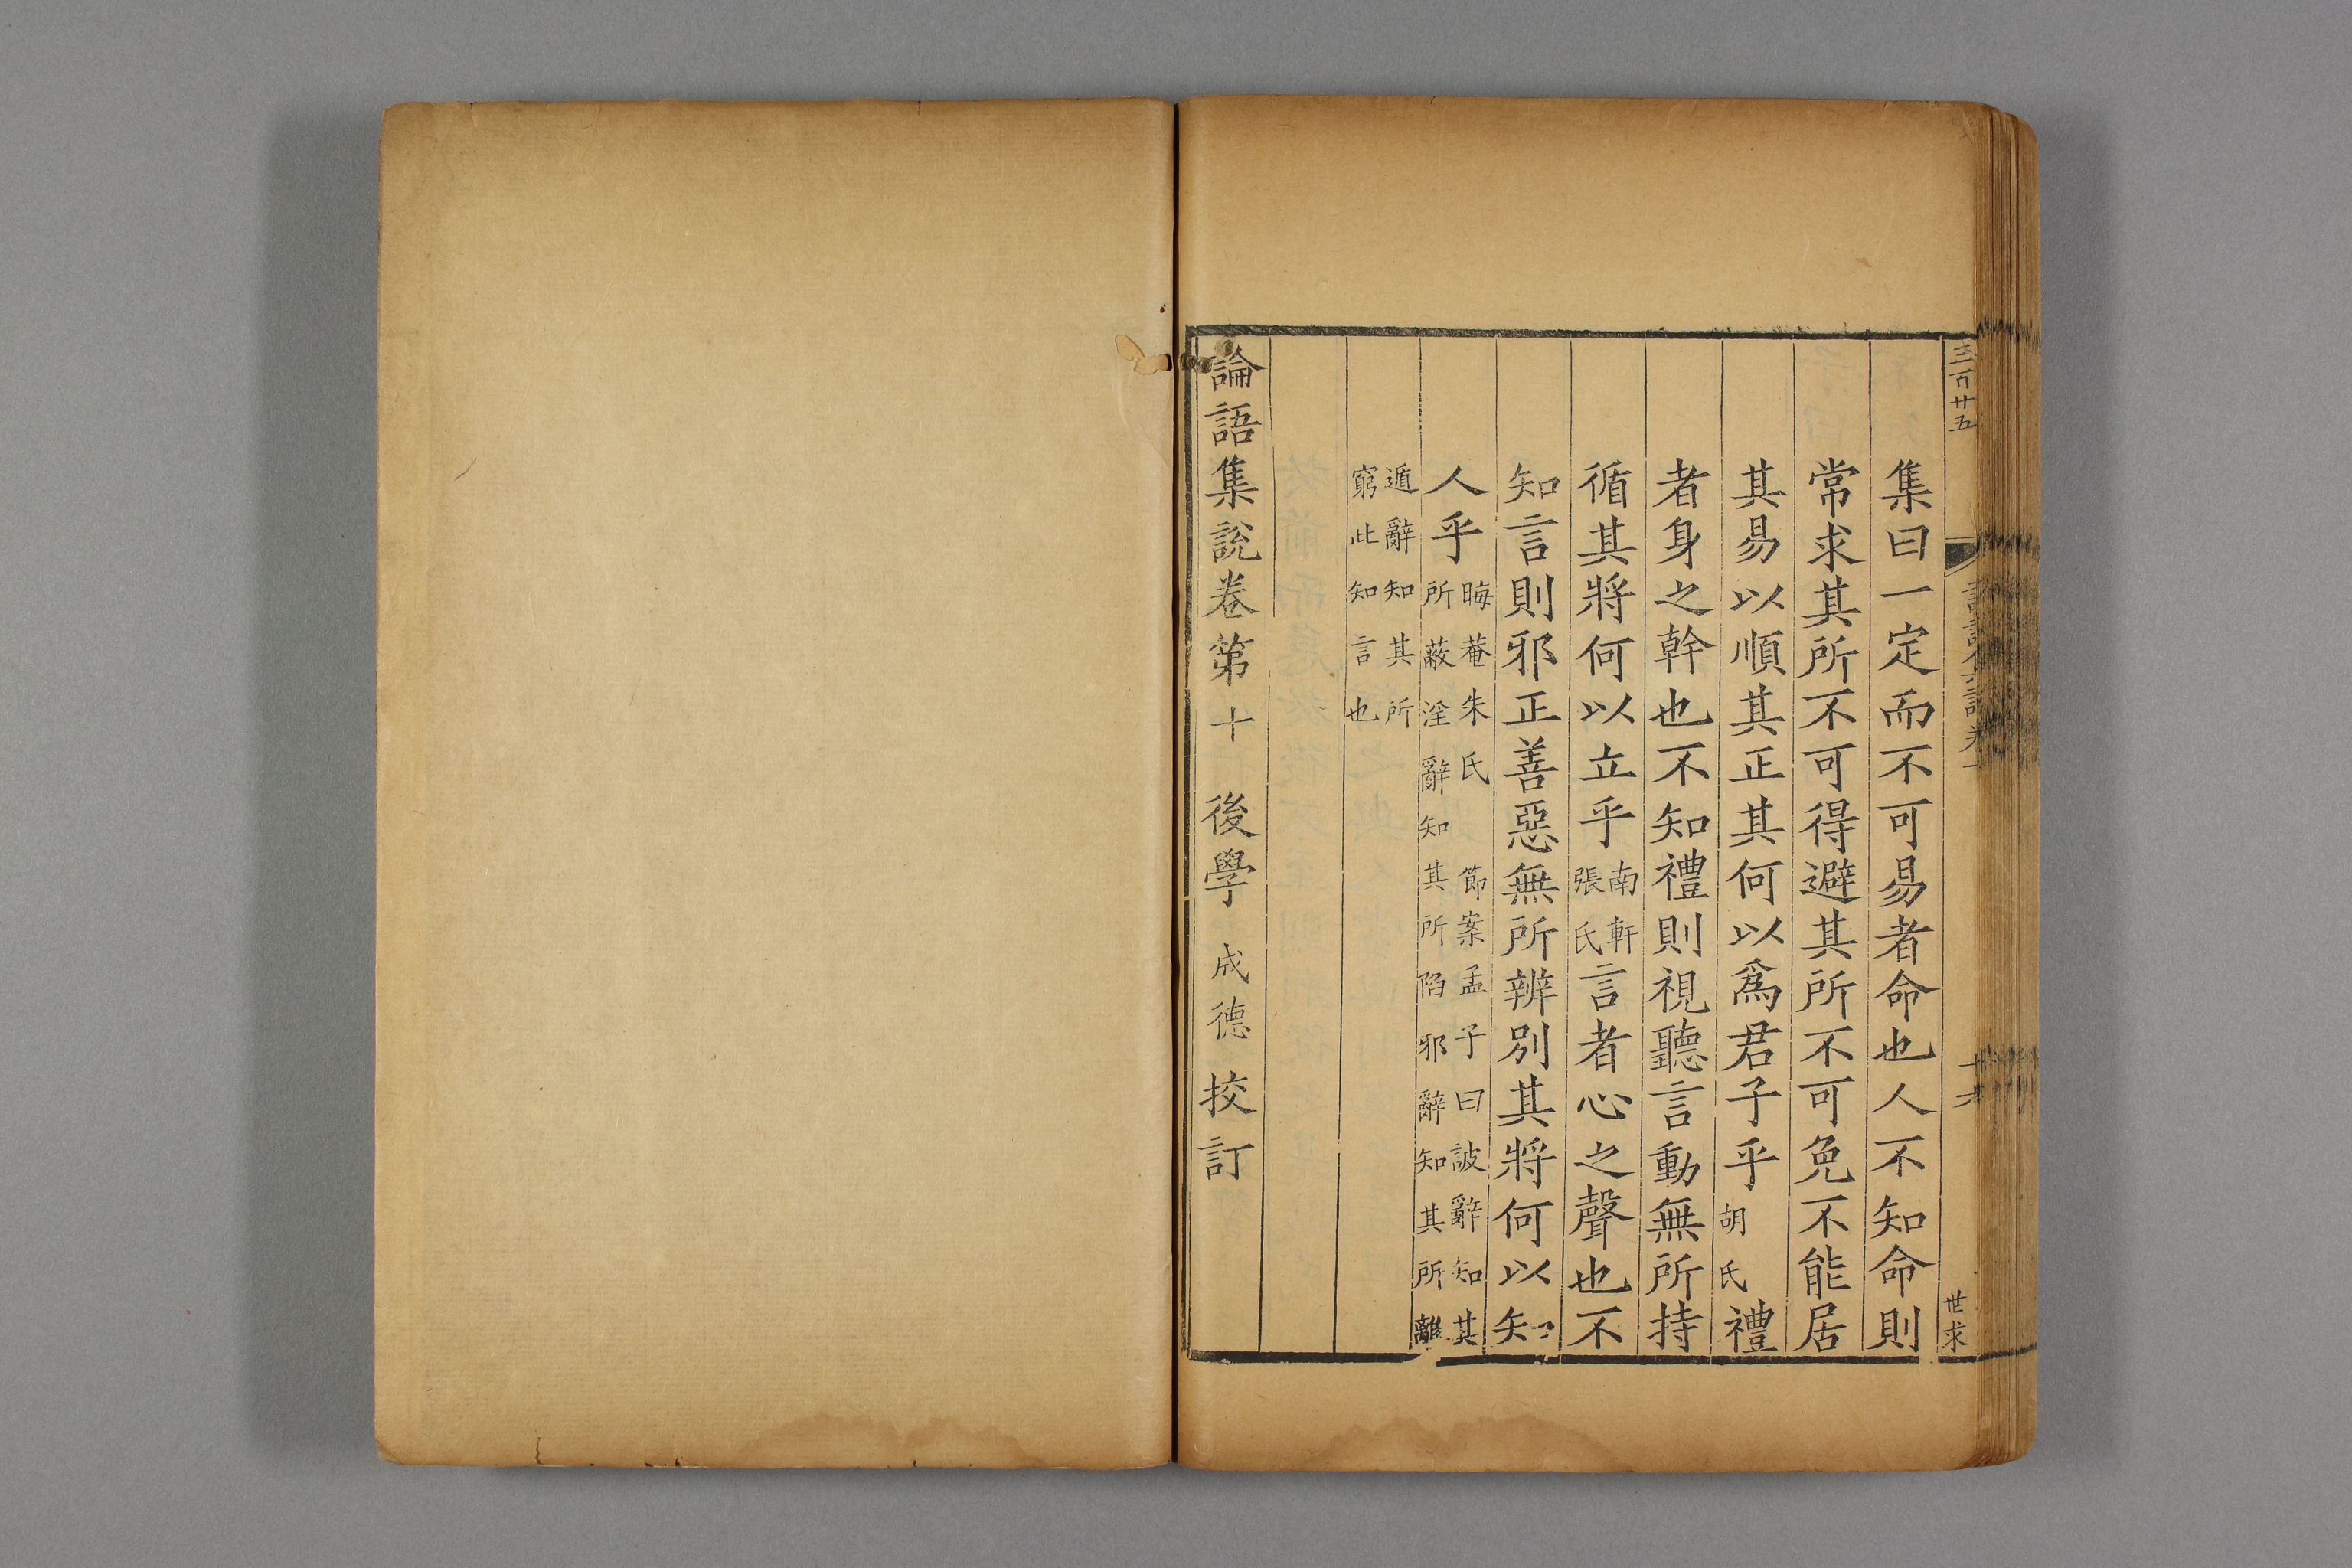 三百廿五
世求
集曰一定而不可易者命也人不知命則
常求其所不可得避其所不可免不能居
其易以順其正其何以爲君子乎胡氏禮
者身之幹也不知禮則視聽言動無所持
循其將何以立乎南軒張氏言者心之聲也不
知言則邪正善惡無所辨別其將何以知
人乎晦菴朱氏 節案孟子曰詖辭知其所蔽淫辭知其所陷邪辭知其所離
遁辭知其所窮此知言也
論語集說卷第十 後學 成德 挍訂